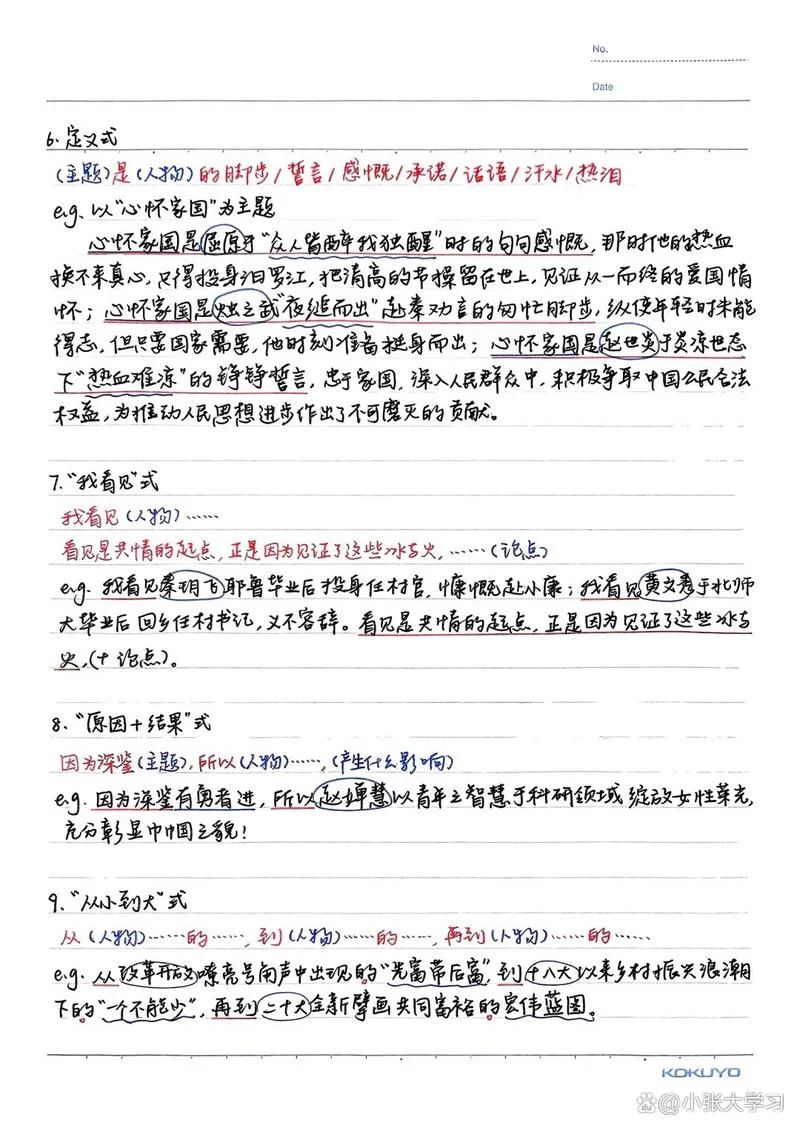 No.
Date
6. 定义式
(主题)是(人物)的脚步/誓言/感慨/承诺/话语/汗水/热泪
e.g. 以"心怀家国"为主题
心怀家国是屈原于"众人皆醉我独醒"时的句句感慨，那时他的热血
换不来真心，只得投身汨罗江，把清高的节操留在世上，见证从一而终的爱国情
怀；心怀家国是烛之武"夜缒而出"赴秦劝言的匆忙脚步，纵使年轻时未能
得志，但只要国家需要，他时刻准备挺身而出；心怀家国是赵世炎于炎凉世态
下"热血难凉"的铮铮誓言，忠于家国，深入人民群众中，积极争取中国公民合法
权益，为推动人民思想进步作出了不可磨灭的贡献。
7. "我看见"式
我看见(人物)……
看见是共情的起点，正是因为见证了这些冰与火，……(论点)
e.g. 我看见秦玥飞耶鲁毕业后投身任村官，慷慨赴小康；我看见黄文秀于北师
大毕业后回乡任村书记，义不容辞。看见是共情的起点，正是因为见证了这些冰与
火，(十论点)。
8. "原因+结果"式
因为深鉴(主题)，所以(人物)……，(产生什么影响)
e.g. 因为深鉴有勇者进，所以赵婵慧以青年之智慧于科研领域绽放女性荣光，
充分彰显巾帼之貌！
9. "从小到大"式
从(人物)……的……，到(人物)……的……，再到(人物)……的……
e.g. 从改革开放嘹亮号角声中出现的"先富带后富"，到十八大以来乡村振兴浪潮
下的"一个不能少"，再到二十大全新擘画共同富裕的宏伟蓝图。
KOKUYO
@小张大学习